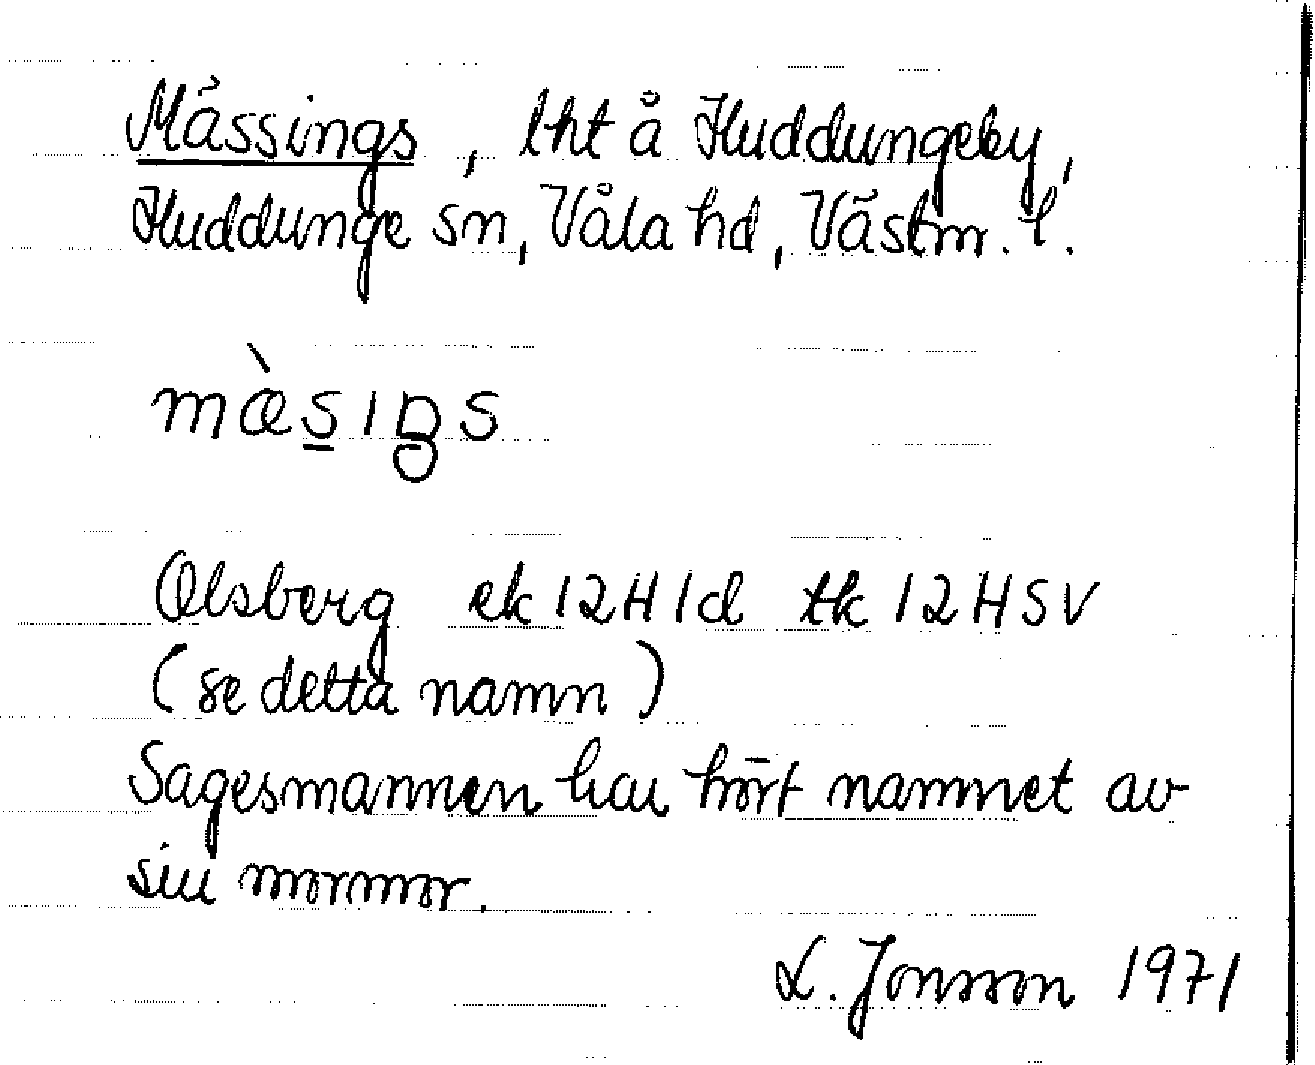 Mässings, lht å Huddungeby,
Huddunge sn, Våla hd, Västm. l.
mæ̀s̲ıŋs
Olsberg ek 12H1d tk 12HSV
(se detta namn)
Sagesmannen har hört namnet av
sin mormor.
L. Jonsson 1971